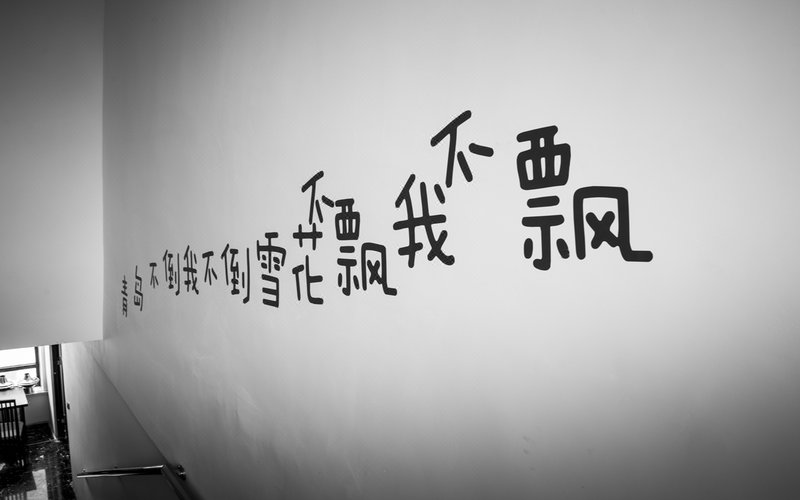 青岛不倒我不倒雪花不飘我不飘